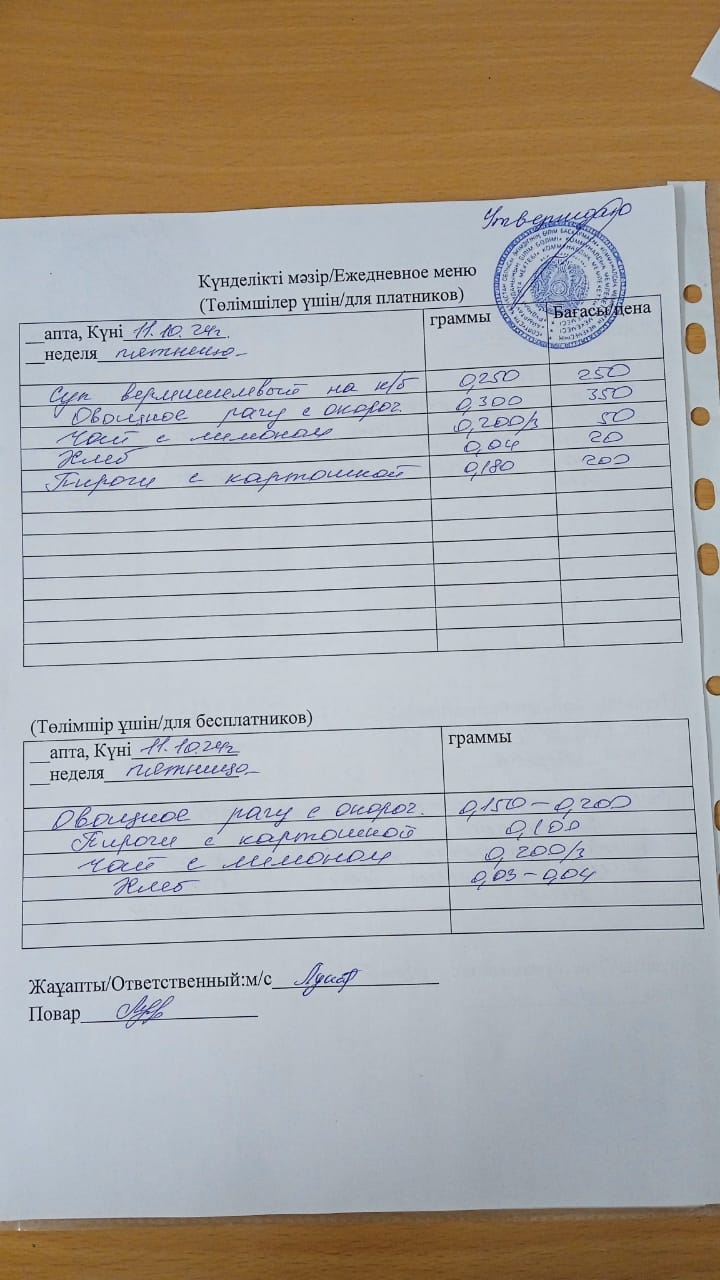 Утверждаю
Күнделікті мәзір/Ежедневное меню
(Төлімшілер үшін/для платников)
__апта, Күні 11.10.24г. граммы Бағасы/цена
__неделя пятница
Суп вермишелевый на к/б 0,250 250
Овощное рагу с окороч. 0,300 350
Чай с лимоном 0,200/3 50
Хлеб 0,04 20
Пироги с картошкой 0,180 200
(Төлімшір ұшін/для бесплатников)
__апта, Күні 11.10.24г граммы
__неделя пятница
Овощное рагу с окороч. 0,150-0,200
Пироги с картошкой 0,100
Чай с лимоном 0,200/3
Хлеб 0,03-0,04
Жаұапты/Ответственный:м/с
Повар